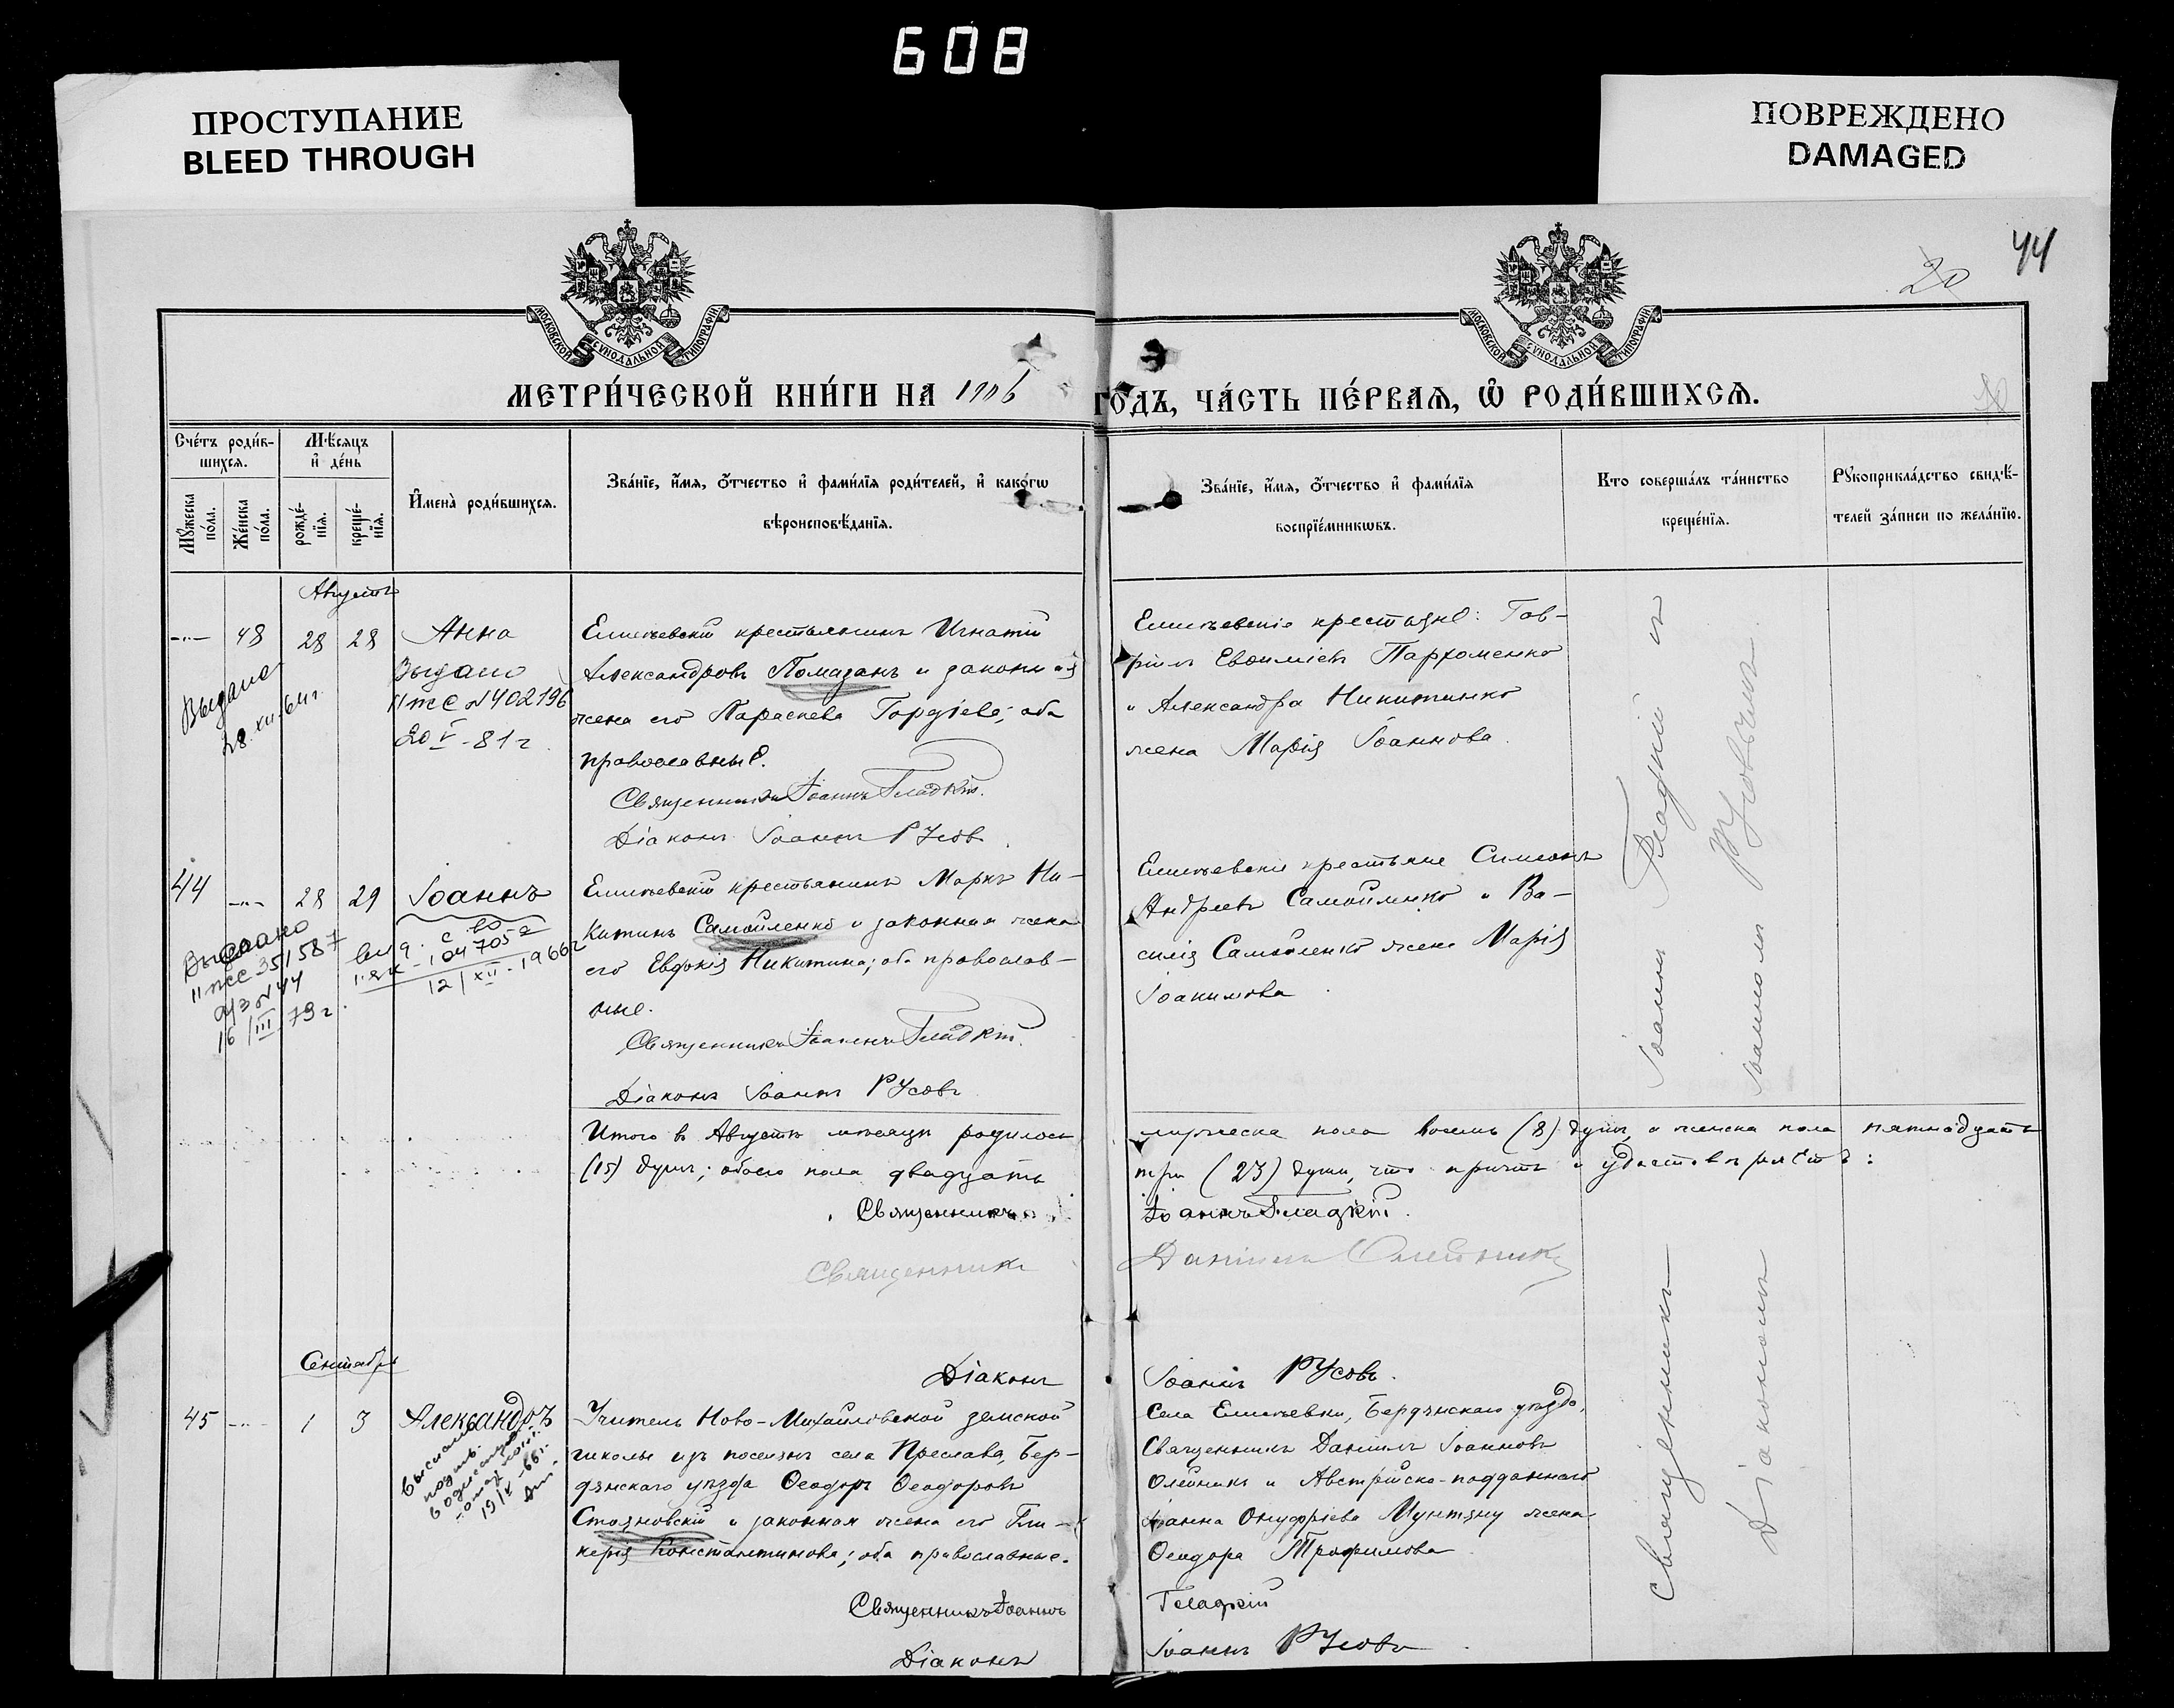 608
ПРОСТУПАНИЕ
BLEED THROUGH
ПОВРЕЖДЕНО
DAMAGED
44
20
МОСКОВСКОЙ СѴНОДАЛЬНОЙ ТИПОГРАФІИ
МОСКОВСКОЙ СѴНОДАЛЬНОЙ ТИПОГРАФІИ
МЕТРИ́ЧЕСКОЙ КНИ́ГИ НА 1906
ГО́ДЪ, ЧА́СТЬ ПЕ́РВАѦ, Ѽ РОДИ́ВШИХСѦ.
Сче́тъ роди́в-
шихсѧ.
Мꙋ́жеска по́ла.
Же́нска по́ла.
Мѣ́сѧцъ
и҆ де́нь
рожде́-
нїѧ.
креще́-
нїѧ.
И҆мена̀ роди́вшихсѧ.
Зва́нїе, и҆́мѧ, ѻ҆́тчество и҆ фами́лїѧ роди́телей, и҆ како́гѡ
вѣроисповѣ́данїѧ.
Зва́нїе, и҆́мѧ, ѻ҆́тчество и҆ фами́лїѧ
воспрїе́мникѡвъ.
Кто соверша́лъ та́инство
креще́нїѧ.
Рꙋкоприкла́дство свидѣ́-
телей за́писи по жела́нїю.
Августъ
48 28 28 Анна
Выдано
28.XII.64г.
Выдано
II ЖС №402196
20 V - 81 г
Елисѣевскій крестьянинъ Игнатій
Александровъ Помазанъ и законная
жена его Параскева Гордіева; оба
православные.
Священникъ Іоаннъ Гладкій.
Діаконъ Іоаннъ Русовъ
Елисѣевскіе крестьяне: Гав-
ріилъ Евѳиміевъ Пархоменко
и Александра Никитенко
жена Марія Іоаннова.
44 28 29 Іоаннъ
Выдано
II ЖС 351587
а/з №44
16/III 79 г.
12/XII-1966г
Елисѣевскій крестьянинъ Маркъ Ни-
китинъ Самойленко и законная жена
его Евдокія Никитина; оба православ-
ные.
Священникъ Іоаннъ Гладкій.
Діаконъ Іоаннъ Русовъ
Елисѣевскіе крестьяне Симеонъ
Андреевъ Самойленко и Ва-
силія Самойленко жена Марія
Іоакимова
Священникъ Іоаннъ Гладкій и
Діакономъ Іоанномъ Русовымъ
Итого въ Августѣ мѣсяцѣ родилось
мужеска пола восемь (8) душъ, а женска пола пятнадцать
(15) душъ; обоего пола двадцать
три (23) души, что причтъ и удостовѣряетъ:
Священникъ
Іоаннъ Гладкій.
Священникъ
Даніилъ Олейникъ
Діаконъ
Іоаннъ Русовъ.
Сентябрь
45 1 3 Александръ
19/X-66г.
Учитель Ново-Михайловской земской
школы изъ поселянъ села Преслава, Бер-
дянскаго уѣзда Ѳеодоръ Ѳеодоровъ
Стояновскій и законная жена его Гли-
керія Константинова; оба православные.
Священникъ Іоаннъ
Діаконъ
Села Елисѣевки, Бердянскаго уѣзда,
Священникъ Даніилъ Іоанновъ
Олейникъ и Австрійско-подданнаго
Іоанна Онуфріева Мунтяну жена
Ѳеодора Трофимова
Гладкій
Іоаннъ Русовъ